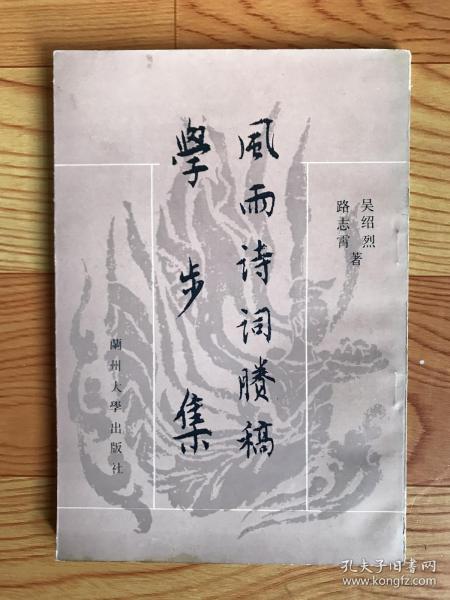 吴绍烈
路志霄
著
風雨诗词賸稿
學步集
蘭州大學出版社
孔夫子旧书网
www.kongfz.com